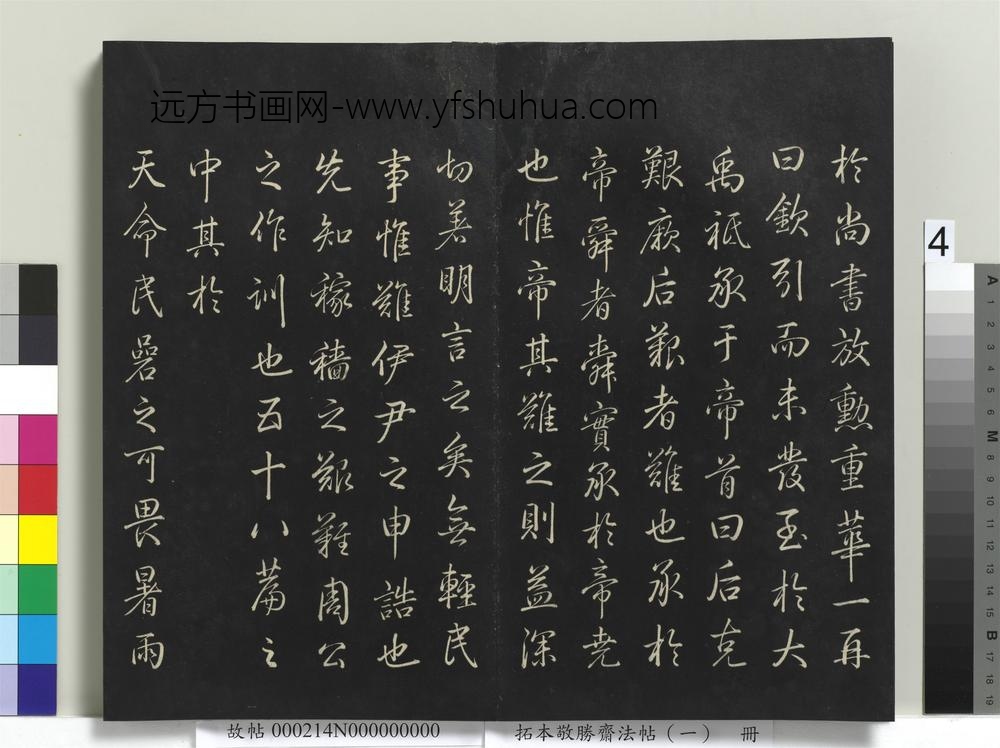 远方书画网-www.yfshuhua.com
於尚書放勳重華一再
曰欽引而未發至於大
禹祗承于帝首曰后克
艱厥后艱者難也承於
帝舜者舜實承於帝堯
也惟帝其難之則益深
切著明言之矣無輕民
事惟難伊尹之申誥也
先知稼穡之艱難周公
之作訓也五十八篇之
中其於
天命民碞之可畏暑雨
4
故帖 000214N000000000
拓本敬勝齋法帖（一） 冊
A 1 2 3 4 5 6 M 8 9 10 11 12 13 14 15 B 17 18 19